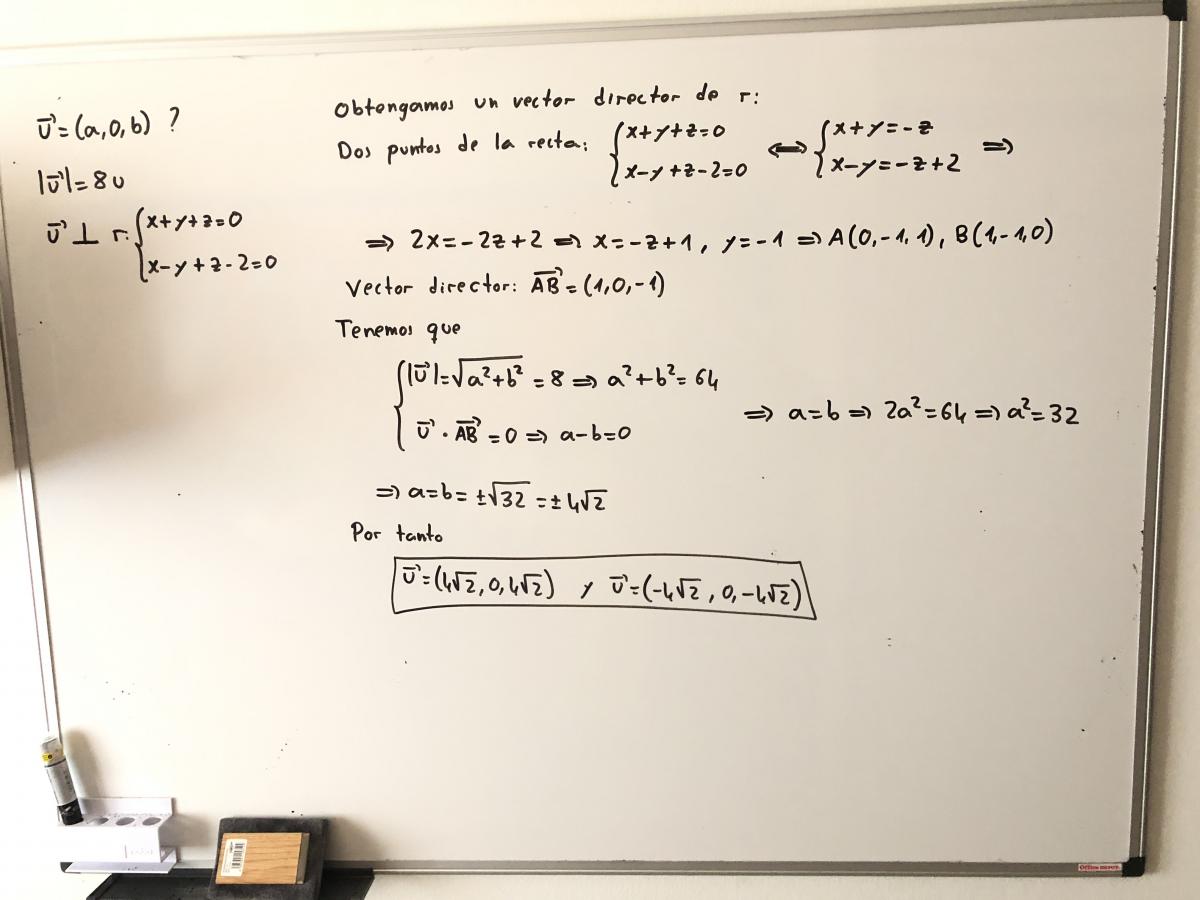 u⃗=(a,0,b) ?
|u⃗|=8u
u⃗ ⊥ r: {x+y+z=0
x-y+z-2=0
Obtengamos un vector director de r:
Dos puntos de la recta: {x+y+z=0 ⟺ {x+y=-z ⇒
x-y+z-2=0 x-y=-z+2
⇒ 2x=-2z+2 ⇒ x=-z+1, y=-1 ⇒ A(0,-1,1), B(1,-1,0)
Vector director: AB⃗=(1,0,-1)
Tenemos que
{|u⃗|=√(a²+b²)=8 ⇒ a²+b²=64
u⃗·AB⃗=0 ⇒ a-b=0 ⇒ a=b ⇒ 2a²=64 ⇒ a²=32
⇒ a=b=±√32=±4√2
Por tanto
u⃗=(4√2,0,4√2) y u⃗=(-4√2,0,-4√2)